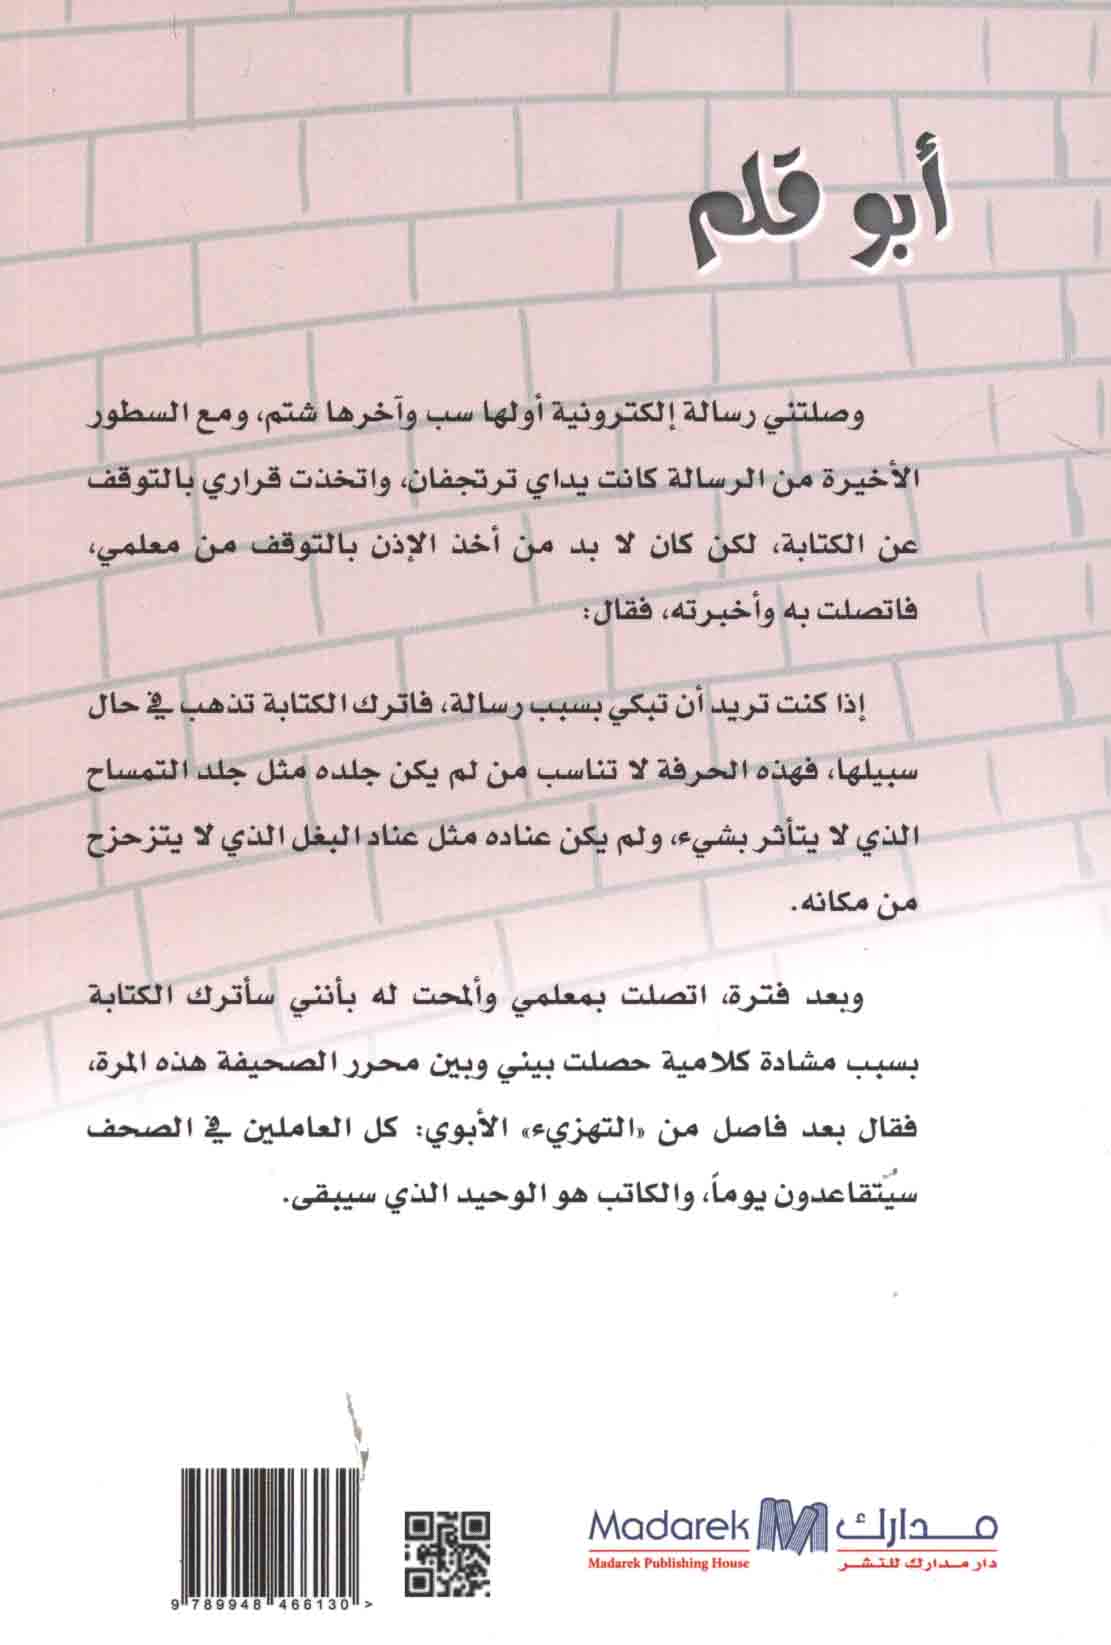 أبو قلم
وصلتني رسالة إلكترونية أولها سب وآخرها شتم، ومع السطور
الأخيرة من الرسالة كانت يداي ترتجفان، واتخذت قراري بالتوقف
عن الكتابة، لكن كان لا بد من أخذ الإذن بالتوقف من معلمي،
فاتصلت به وأخبرته، فقال:
إذا كنت تريد أن تبكي بسبب رسالة، فاترك الكتابة تذهب في حال
سبيلها، فهذه الحرفة لا تناسب من لم يكن جلده مثل جلد التمساح
الذي لا يتأثر بشيء، ولم يكن عناده مثل عناد البغل الذي لا يتزحزح
من مكانه.
وبعد فترة، اتصلت بمعلمي وألمحت له بأنني سأترك الكتابة
بسبب مشادة كلامية حصلت بيني وبين محرر الصحيفة هذه المرة،
فقال بعد فاصل من «التهزيء» الأبوي: كل العاملين في الصحف
سيُتقاعدون يوماً، والكاتب هو الوحيد الذي سيبقى.
Madarek مدارك
Madarek Publishing House دار مدارك للنشر
9 789948 466130 >